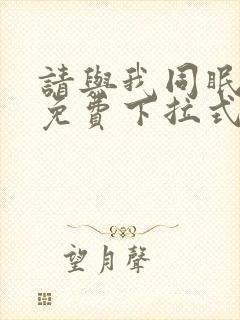 請與我同眠
免費下拉式
望月聲